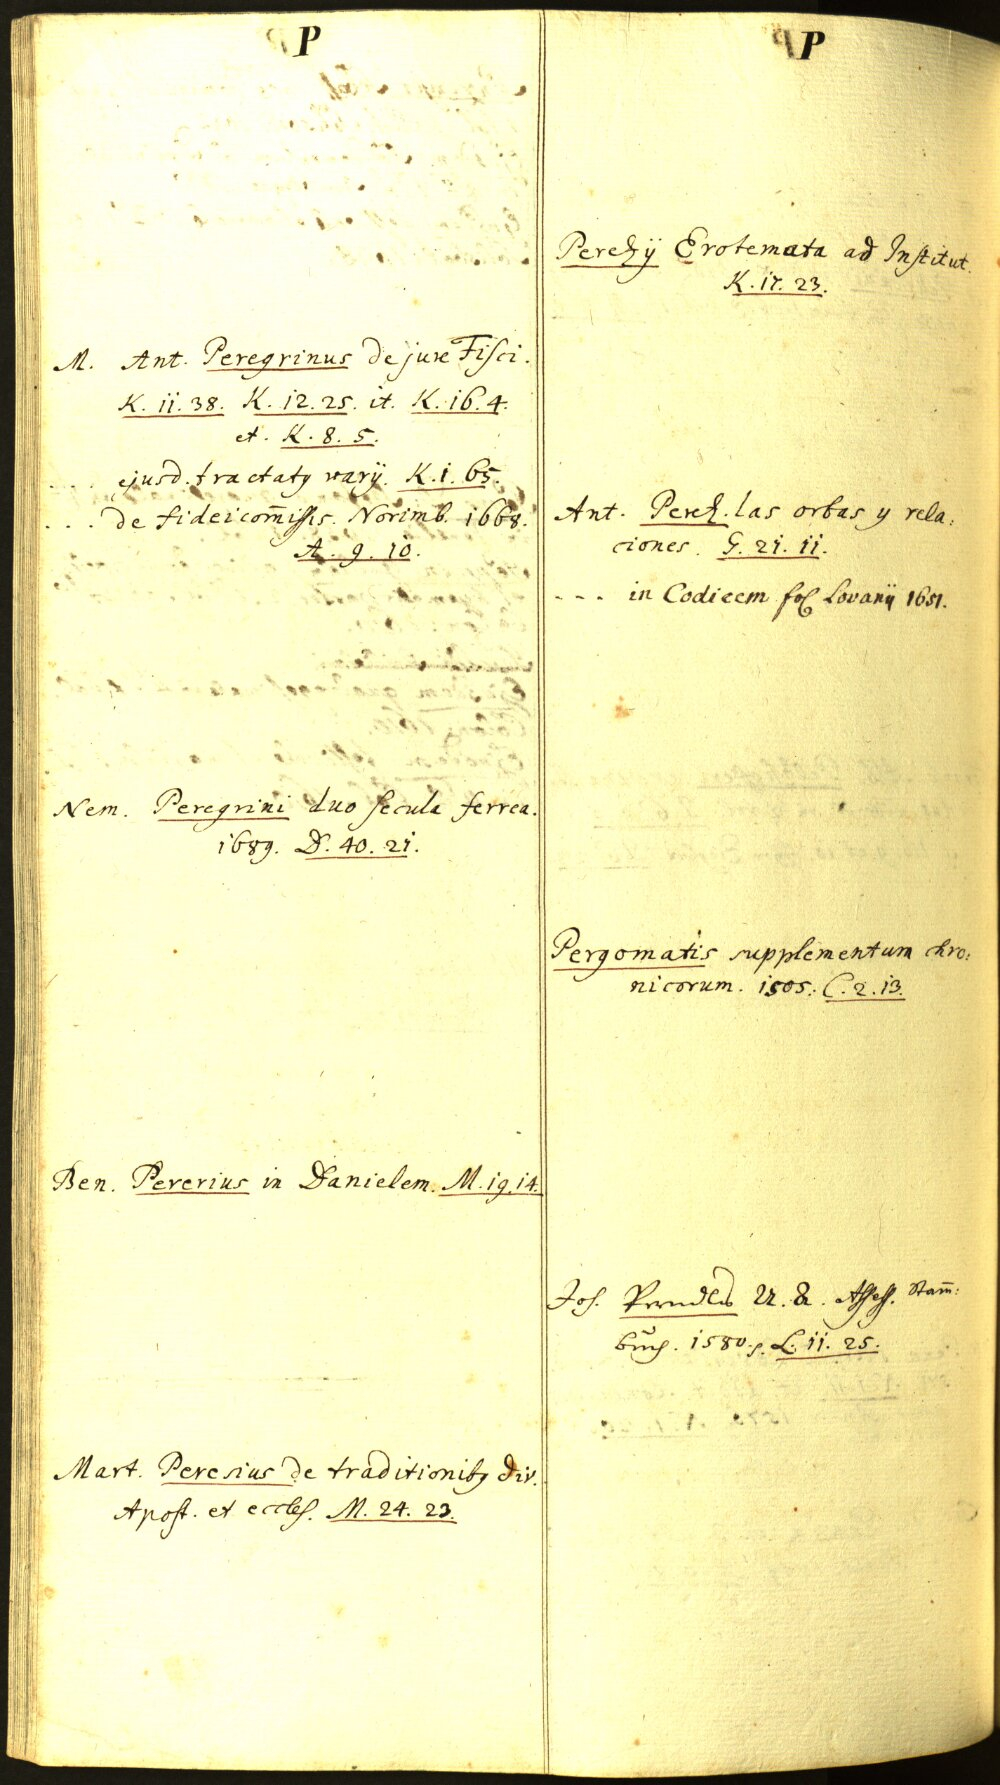 P
M. Ant. Peregrinus de jure Fisci.
K. 11. 38. K. 12. 25. it. K. 16. 4.
et. K. 8. 5.
. . . . ejusd. tractatꝰ varÿ. K. 1. 65.
. . . de fideicom̄issis. Norimb. 1668.
A. 9. 10.
Nem. Peregrini duo secula ferrea.
1689. D. 40. 21.
Ben. Pererius in Danielem. M. 19. 14.
Mart. Peresius de traditionibꝰ div.
Apost. et eccles. M. 24. 23.
P
Perezÿ Erotemata ad Institut.
K. 17. 23.
Ant. Perez. las orbas y rela:
ciones. G. 21. 11.
- - - in Codicem fol Lovanÿ 1651.
Pergomatis supplementum chro:
nicorum. 1505. C. 2. 13.
Jos. U. &. Assess. Stam̄:
buch. 1580. L. 11. 25.